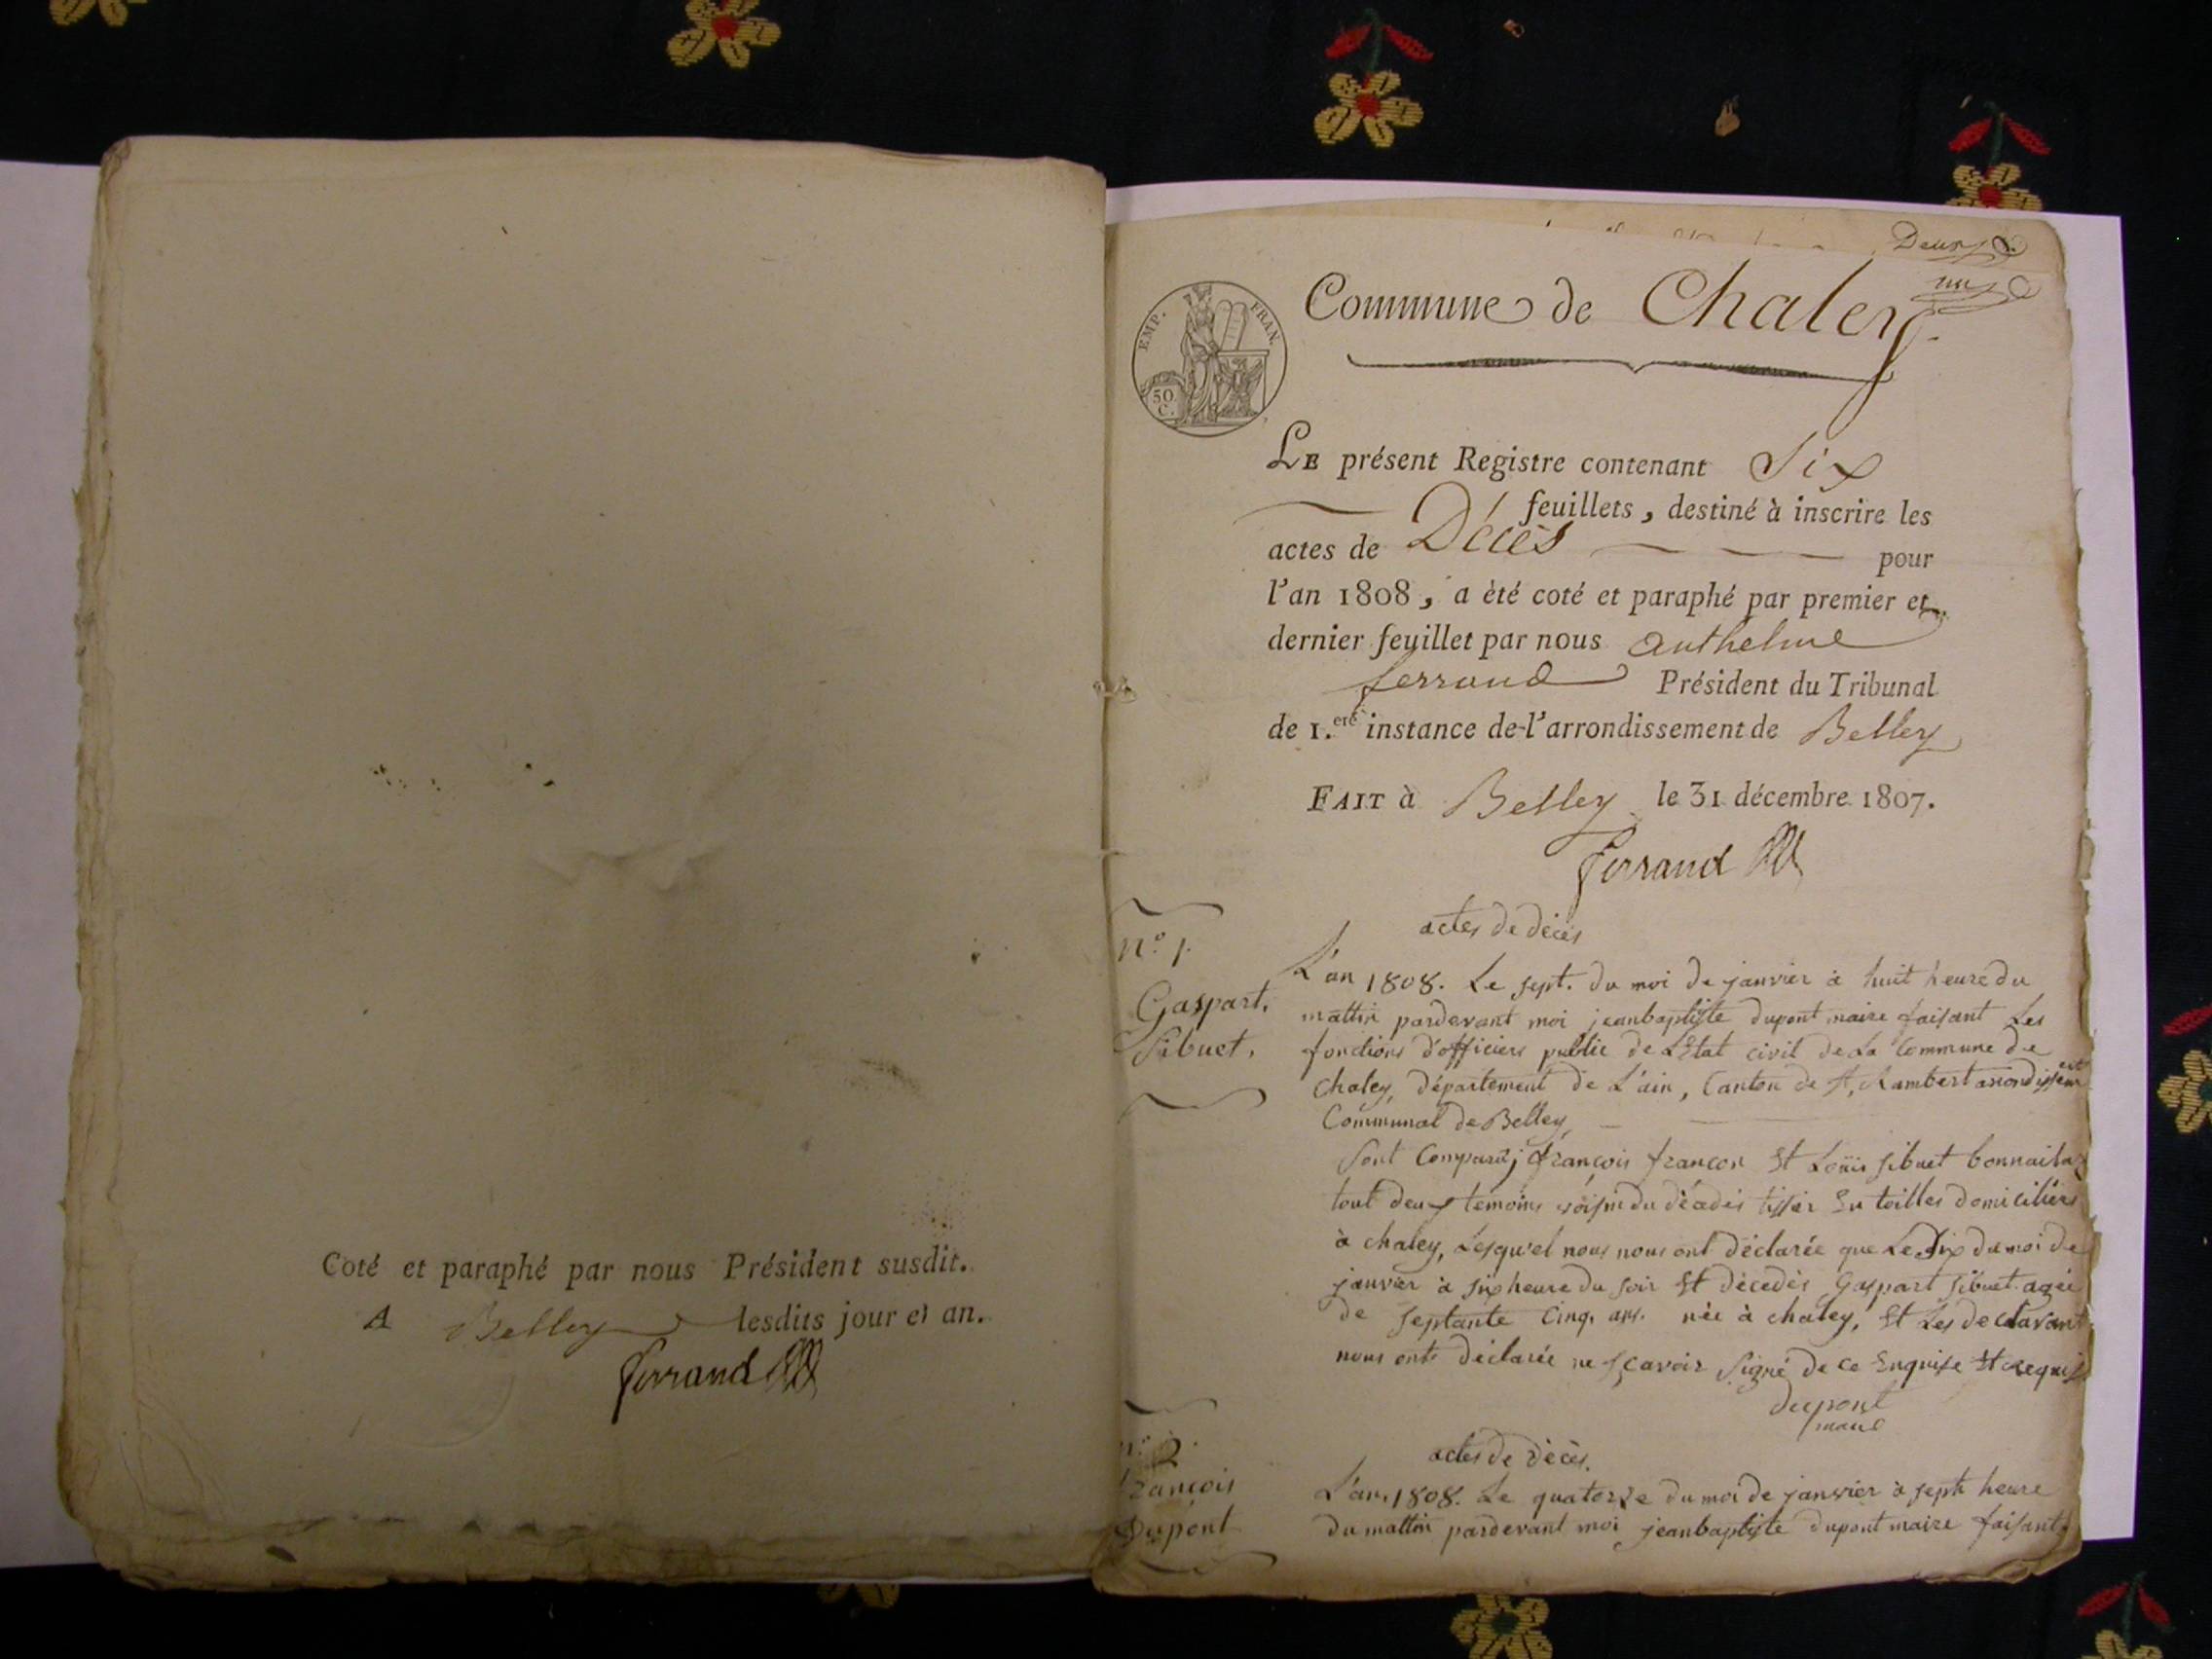 Coté et paraphé par nous Président susdit.
A Belley lesdits jour et an.
Ferrand
Deux
un
Commune de Chaley
EMP. FRAN.
50
C.
LE présent Registre contenant Six
feuillets, destiné à inscrire les
actes de Décès pour
l'an 1808, a èté coté et paraphé par premier et
dernier feuillet par nous anthelme
ferrand Président du Tribunal
de 1.ere instance de l'arrondissement de Belley
FAIT à Belley le 31 décembre 1807.
Ferrand
n.º 1.
Gaspart.
Sibuet.
actes de décès
L'an 1808. Le sept. du moi de janvier à huit heure du
mattin pardevant moi jeanbaptiste dupont maire faisant Les
fonctions d'officiers public de L'Etat civil de La Commune de
Chaley, département de L'ain, Canton de St. Rambert arondissement
Communal de Belley,
Sont Comparu; françois françon Et Loüis Sibuet bonnailas
tout deux temoins voisin du décédés tissier En toilles domiciliérs
à chaley, Lesqu'el nous nous ont déclarée que Le Six du moi de
janvier à six heure du soir Et décedés Gaspart Sibuet agée
de septante Cinq. ans. née à chaley, Et Les declarant
nous onts déclarée ne sçavoir Signé de ce Enquise Et requis
dupont
maire
n.º 2.
françois
Dupont
actes de décès.
L'an. 1808. Le quatorze du moi de janvier à sept heure
du mattin pardevant moi jeanbaptiste dupont maire faisant